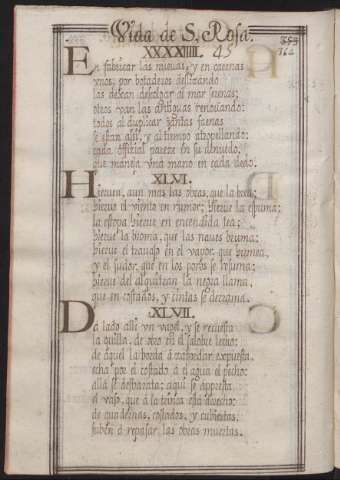 Vida de S. Rosa.
XXXXIIII. 45
En fabricar las nuevas, y en carenas
vnos; por botaderos deslizando
las dexan descolgar al mar serenas;
otros van las antiguas renovando:
todos al duplicar tantas faenas
se estan alli, y al tiempo atropellando;
cada official parece en su denuedo,
que maneja vna mano en cada dedo.
XLVI.
Hierven, aun mas las obras, que la brea;
hierve el viento en rumor; hierve la espuma;
la estopa hierve en encendida tea;
hierve la broma, que las naves bruma;
hierve el trabajo en el vapor, que humea,
y el sudor, que en los poros se rezuma;
hierve del alquitran la negra llama,
que en costados, y cintas se derrama.
XLVII.
Da lado alli vn vagel, y se recuesta
la quilla, de otro en el salobre lecho;
de aquel la borda à trasbordar expuesta,
echa por el costado à el agua el pecho:
alla se desbarata; aqui se appresta
el vaso, que à la trinca està derecho;
de quadernas, costados, y cubiertas,
suben à repasar las obras muertas.